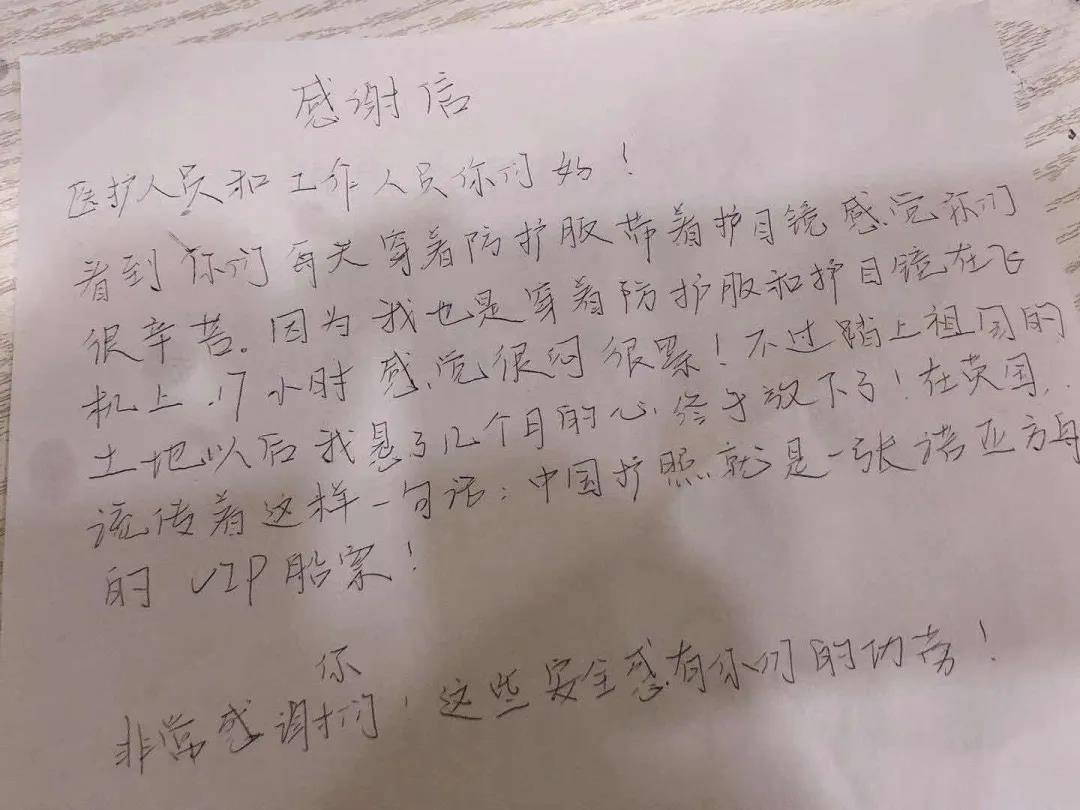 感谢信
医护人员和工作人员你们好！
看到你们每天穿着防护服带着护目镜感觉你们
很辛苦。因为我也是穿着防护服和护目镜在飞
机上17小时感觉很闷很累！不过踏上祖国的
土地以后我悬了几个月的心终于放下了！在英国
流传着这样一句话：中国护照就是一张诺亚方舟
的VIP船票！
你
非常感谢们，这些安全感有你们的功劳！